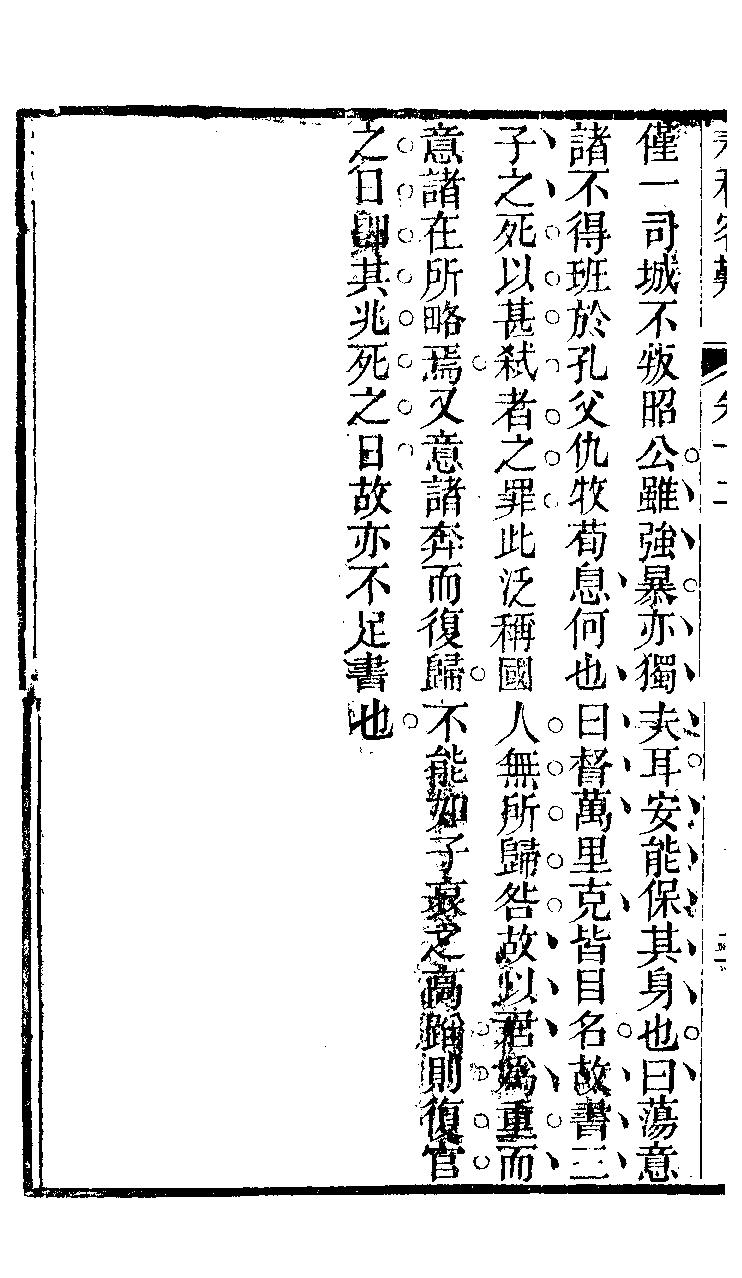 僅一司城不叛昭公雖強暴亦獨夫耳安能保其身也曰蕩意
諸不得班於孔父仇牧荀息何也曰督萬里克皆目名故書三
子之死以甚弑者之罪此泛稱國人無所歸咎故以君爲重而
意諸在所略焉又意諸奔而復歸不能如子哀之高蹈則復官
之日卽其兆死之日故亦不足書也